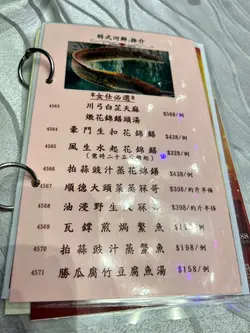 特式河鮮推介
*女仕必選*
4563 川弓白芷天麻
燉花錦鱔頭湯 $568/例
4564 豪門生扣花錦鱔 $438/例
4565 風生水起花錦鱔 $328/例
(需時二十五分鐘起)
4566 拍蒜豉汁蒸花錦鱔 $438/例
4567 順德大頭菜蒸冧哥 $398/約斤半條
4568 油浸野生冧哥 $398/約斤半條
4569 瓦罉煎焗鱉魚 $198/例
4570 拍蒜豉汁蒸鱉魚 $188/例
4571 勝瓜腐竹豆腐魚湯 $158/例